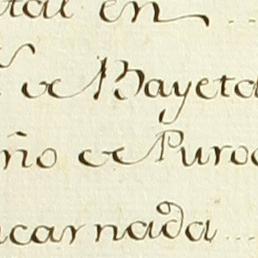 tal en
de Bayeta
ño de Puro
ncarnada